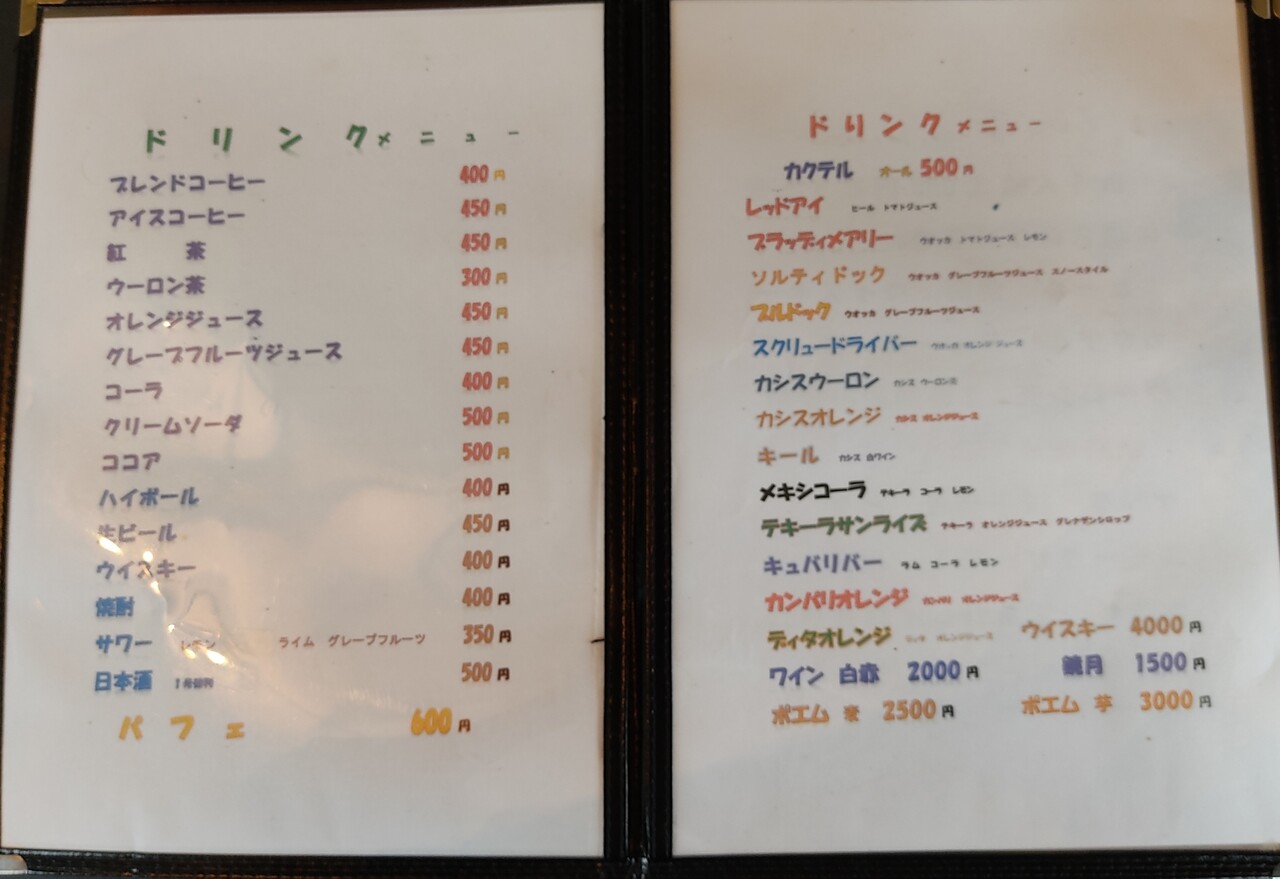 ドリンクメニュー
ブレンドコーヒー 400円
アイスコーヒー 450円
紅茶 450円
ウーロン茶 300円
オレンジジュース 450円
グレープフルーツジュース 450円
コーラ 400円
クリームソーダ 500円
ココア 500円
ハイボール 400円
生ビール 450円
ウイスキー 400円
焼酎 400円
サワー レモン ライム グレープフルーツ 350円
日本酒 500円
パフェ 600円
ドリンクメニュー
カクテル オール 500円
レッドアイ ビール トマトジュース
ブラッディメアリー ウオッカ トマトジュース レモン
ソルティドック ウオッカ グレープフルーツジュース スノースタイル
ブルドック ウオッカ グレープフルーツジュース
スクリュードライバー ウオッカ オレンジジュース
カシスウーロン カシス ウーロン茶
カシスオレンジ カシス オレンジジュース
キール カシス 白ワイン
メキシコーラ テキーラ コーラ レモン
テキーラサンライズ テキーラ オレンジジュース グレナデンシロップ
キュバリバー ラム コーラ レモン
カンパリオレンジ カンパリ オレンジジュース
ディタオレンジ ディタ オレンジジュース ウイスキー 4000円
ワイン 白赤 2000円 鏡月 1500円
ポエム 麦 2500円 ポエム 芋 3000円